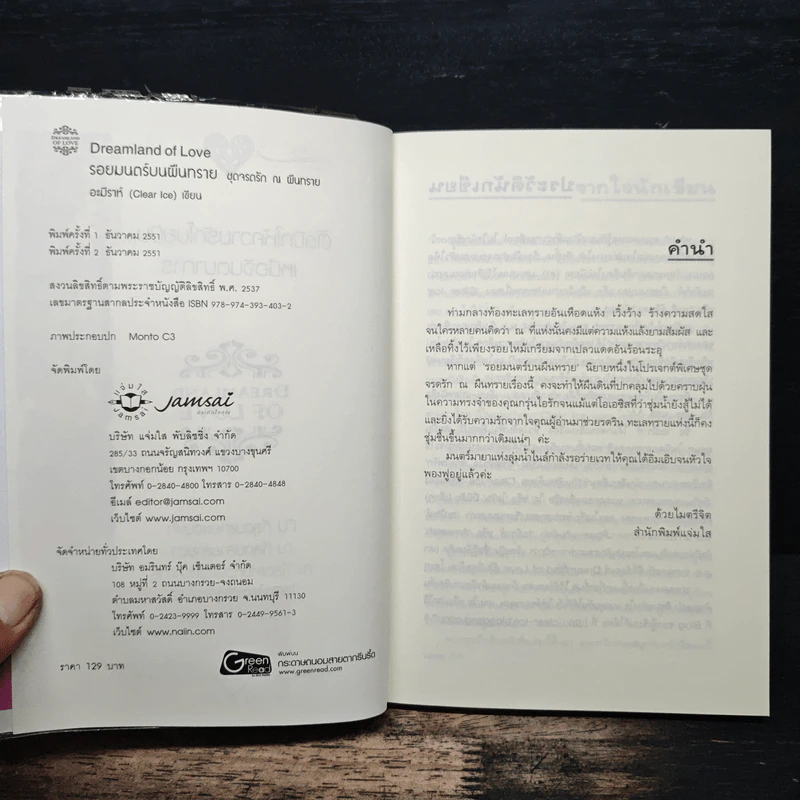 DREAMLAND
OF LOVE
Dreamland of Love
รอยมนตร์บนผืนทราย ชุดจรดรัก ณ ผืนทราย
อะมีราห์ (Clear Ice) เขียน
พิมพ์ครั้งที่ 1 ธันวาคม 2551
พิมพ์ครั้งที่ 2 ธันวาคม 2551
สงวนลิขสิทธิ์ตามพระราชบัญญัติลิขสิทธิ์ พ.ศ. 2537
เลขมาตรฐานสากลประจำหนังสือ ISBN 978-974-393-403-2
ภาพประกอบปก Monto C3
จัดพิมพ์โดย
แจ่มใส
Jamsai
Jamsai
บริษัท แจ่มใส พับลิชชิ่ง จำกัด
285/33 ถนนจรัญสนิทวงศ์ แขวงบางขุนศรี
เขตบางกอกน้อย กรุงเทพฯ 10700
โทรศัพท์ 0-2840-4800 โทรสาร 0-2840-4848
อีเมล์ editor@jamsai.com
เว็บไซต์ www.jamsai.com
จัดจำหน่ายทั่วประเทศโดย
บริษัท อมรินทร์ บุ๊ค เซ็นเตอร์ จำกัด
108 หมู่ที่ 2 ถนนบางกรวย-จงถนอม
ตำบลมหาสวัสดิ์ อำเภอบางกรวย จ.นนทบุรี 11130
โทรศัพท์ 0-2423-9999 โทรสาร 0-2449-9561-3
เว็บไซต์ www.naiin.com
ราคา 129 บาท
Green
Read
พิมพ์บน
กระดาษถนอมสายตากรีนรี้ด
www.greenread.com
คำนำ
ท่ามกลางท้องทะเลทรายอันเหือดแห้ง เวิ้งว้าง ร้างความสดใส
จนใครหลายคนคิดว่า ณ ที่แห่งนั้นคงมีแต่ความแห้งแล้งยามสัมผัส และ
เหลือทิ้งไว้เพียงรอยไหม้เกรียมจากเปลวแดดอันร้อนระอุ
หากแต่ 'รอยมนตร์บนผืนทราย' นิยายหนึ่งในโปรเจกต์พิเศษชุด
จรดรัก ณ ผืนทรายเรื่องนี้ คงจะทำให้ผืนดินที่ปกคลุมไปด้วยคราบฝุ่น
ในความทรงจำของคุณกรุ่นไอรักจนแม้แต่โอเอซิสที่ว่าชุ่มน้ำยังสู้ไม่ได้
และยิ่งได้รับความรักจากใจคุณผู้อ่านมาช่วยรดริน ทะเลทรายแห่งนี้ก็คง
ชุ่มชื้นขึ้นมากกว่าเดิมแน่ๆ ค่ะ
มนตร์มายาแห่งลุ่มน้ำไนล์กำลังรอร่ายเวทให้คุณได้อิ่มเอิบจนหัวใจ
พองฟูอยู่แล้วค่ะ
ด้วยไมตรีจิต
สำนักพิมพ์แจ่มใส